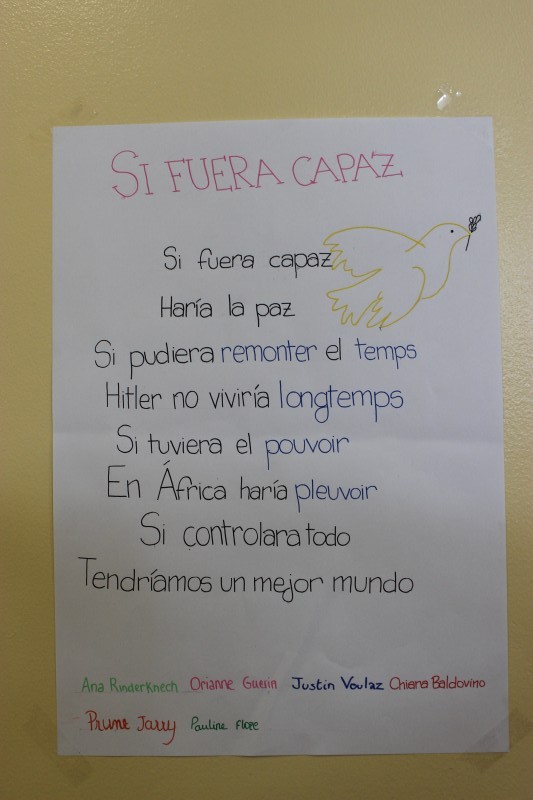 SI FUERA CAPAZ
Si fuera capaz
Haría la paz
Si pudiera remonter el temps
Hitler no viviría longtemps
Si tuviera el pouvoir
En África haría pleuvoir
Si controlara todo
Tendríamos un mejor mundo
Ana Rinderknech Orianne Guerin Justin Voulaz Chiara Baldovino
Prune Jarry Pauline